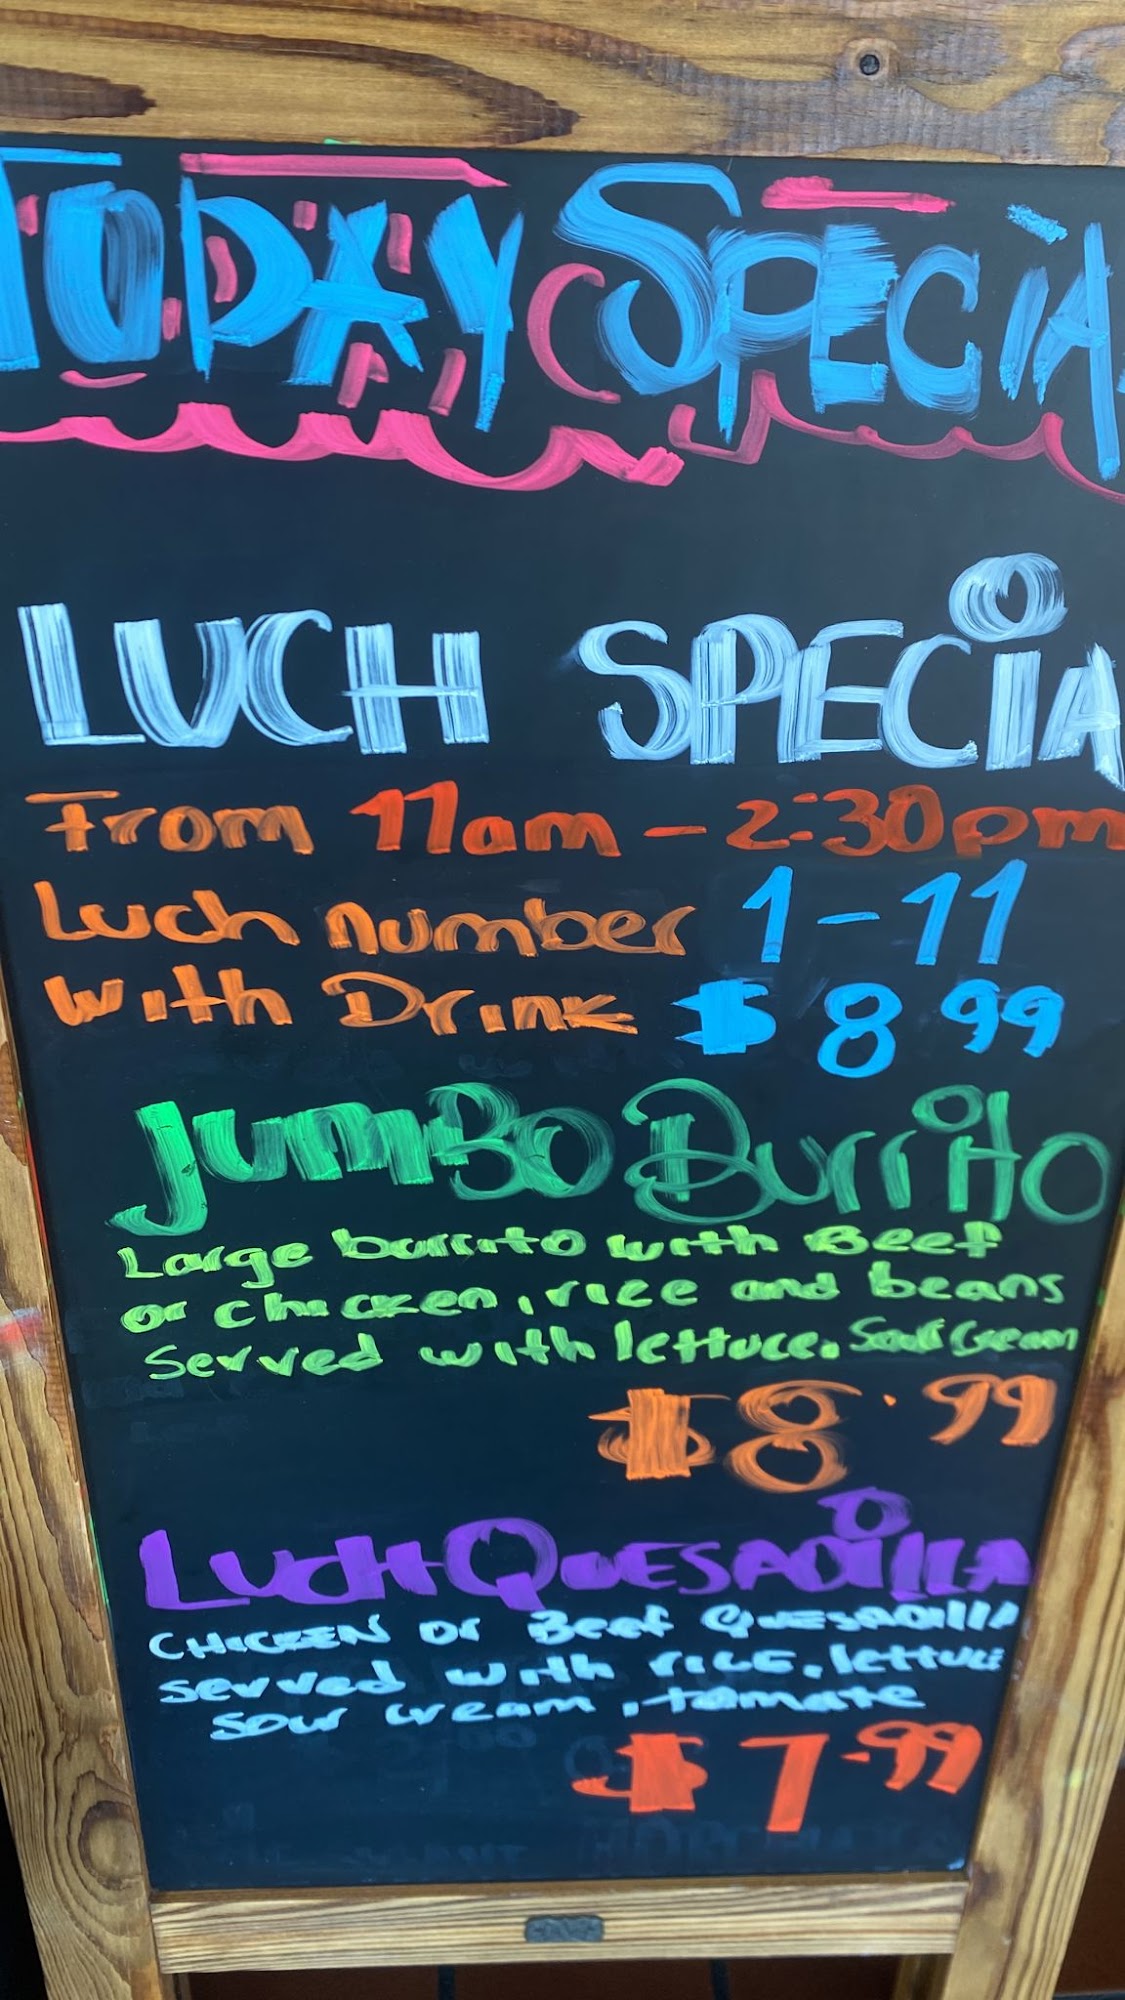 TODAY SPECIA
LUCH SPECIA
From 11am - 2:30pm
Luch number 1-11
With Drink $8.99
JUMBO Burrito
Large burrito with Beef
or chicken, rice and beans
Served with lettuce. Sour Cream
$8.99
LUCH QUESADILLA
CHICKEN or Beef QUESADILLA
served with rice, lettuce
sour cream, tomate
$7.99